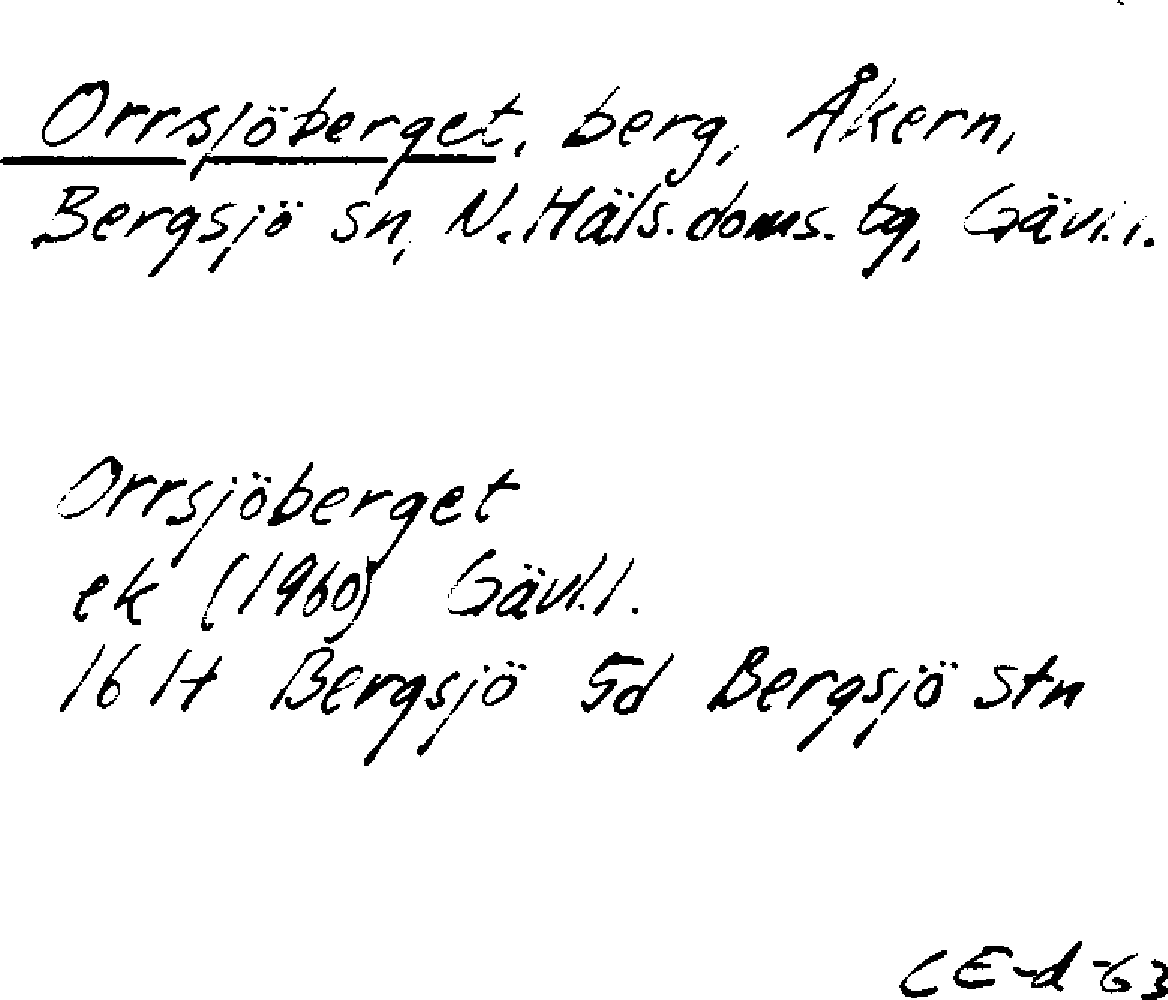 Orrsjöberget, berg, Åkern,
Bergsjö sn, N. Häls. doms. tg, Gävl.l.
Orrsjöberget
ek (1960) Gävl.l.
16 H Bergsjö 5d Bergsjö stn
CE-d -63